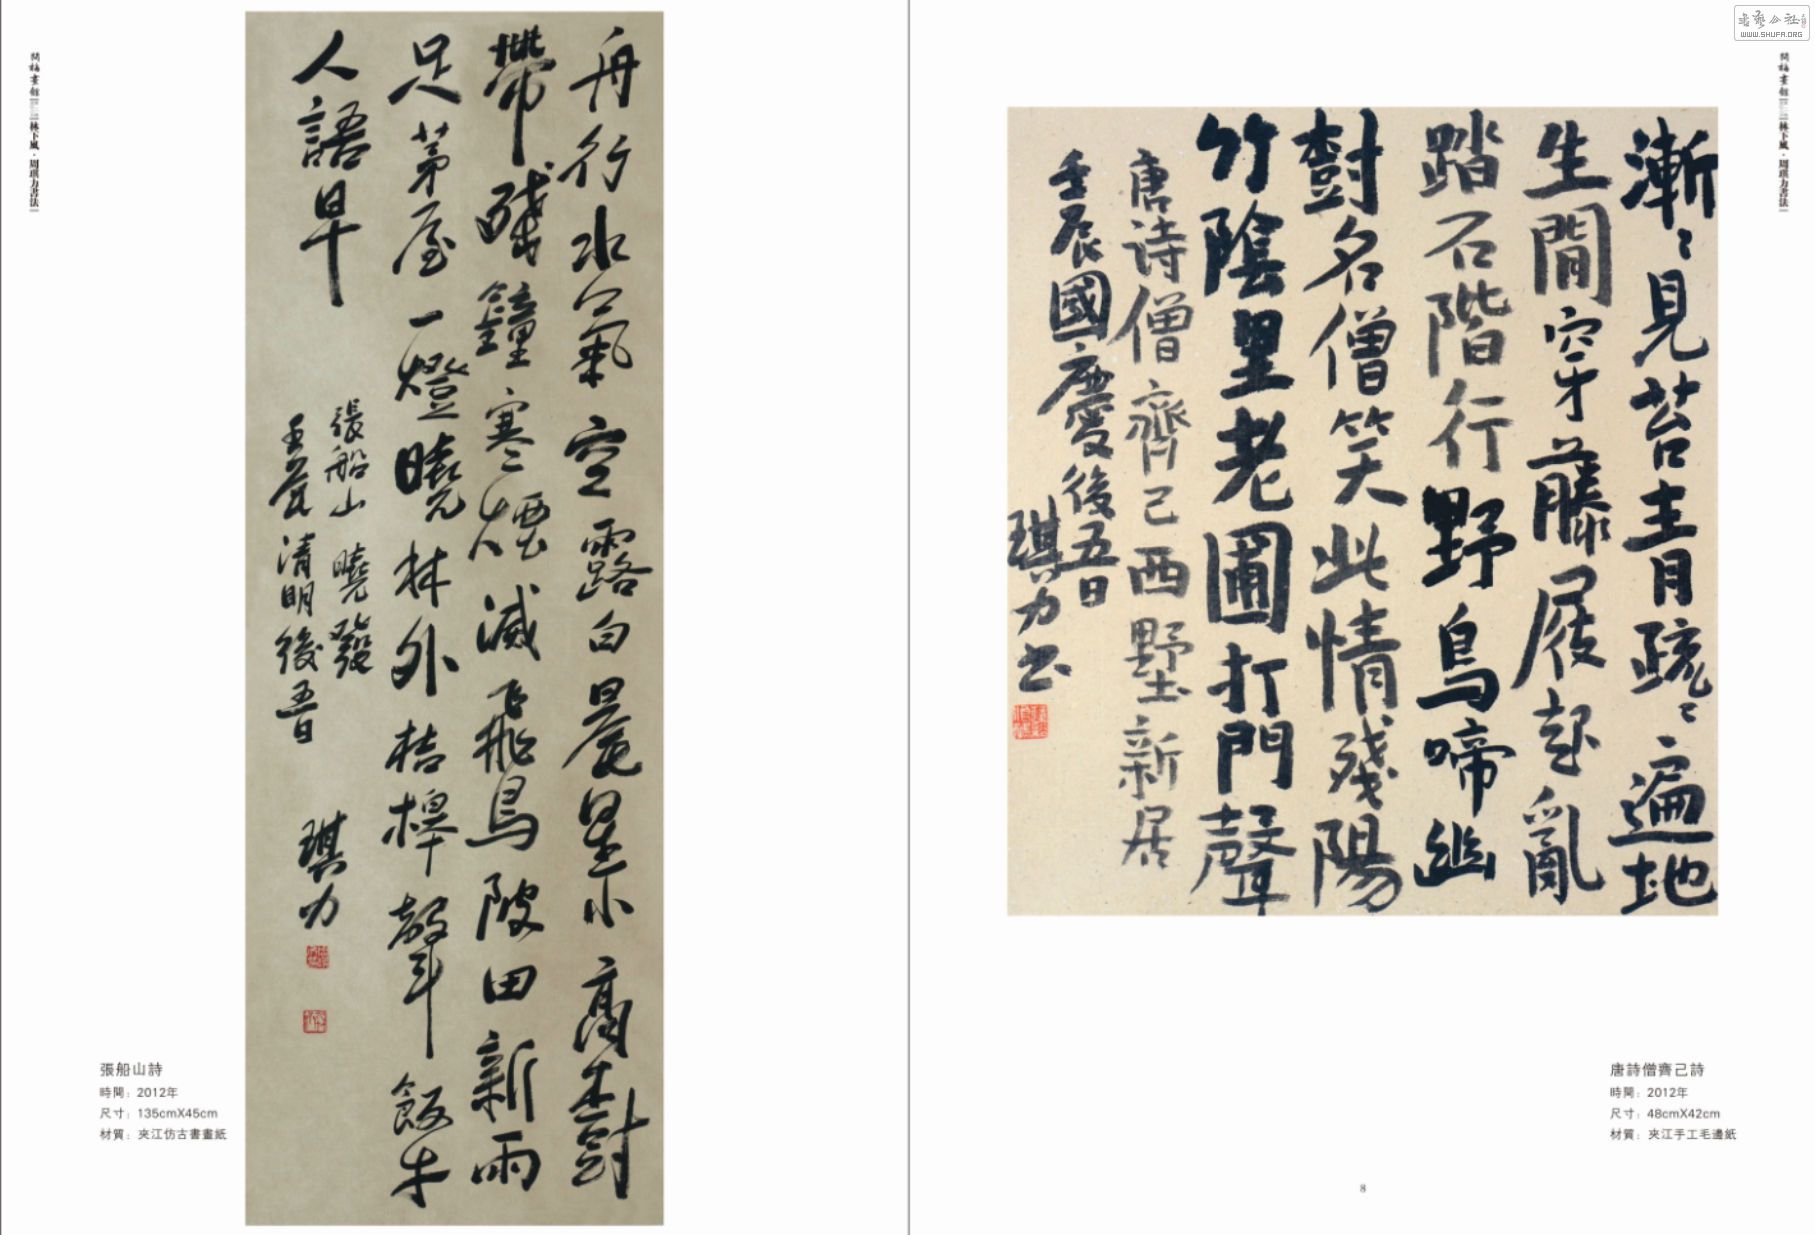 林下風·周琪力書法
舟行水氣空露白晨星小高樹
帶殘鐘寒煙滅飛鳥陂田新雨
足茅屋一燈曉林外桔槔聲飯牛
人語早
張船山 曉發
壬辰清明後五日
琪力
張船山詩
時間：2012年
尺寸：135cmX45cm
材質：夾江仿古書畫紙
書藝公社
WWW.SHUFA.ORG
林下風·周琪力書法
漸〻見苔青疏〻遍地
生閒穿藤屐起亂
踏石階行野鳥啼幽
樹名僧笑此情殘陽
竹陰里老圃打門聲
唐詩僧齊己西墅新居
壬辰國慶後五日
琪力书
唐詩僧齊己詩
時間：2012年
尺寸：48cmX42cm
材質：夾江手工毛邊紙
8